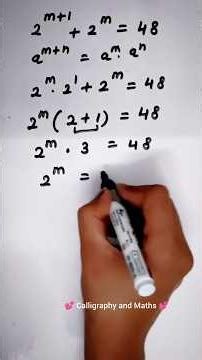 2^{m+1} + 2^m = 48
a^{m+n} = a^m · a^n
2^m · 2^1 + 2^m = 48
2^m (2+1) = 48
2^m · 3 = 48
2^m =
💞 Calligraphy and Maths 💞